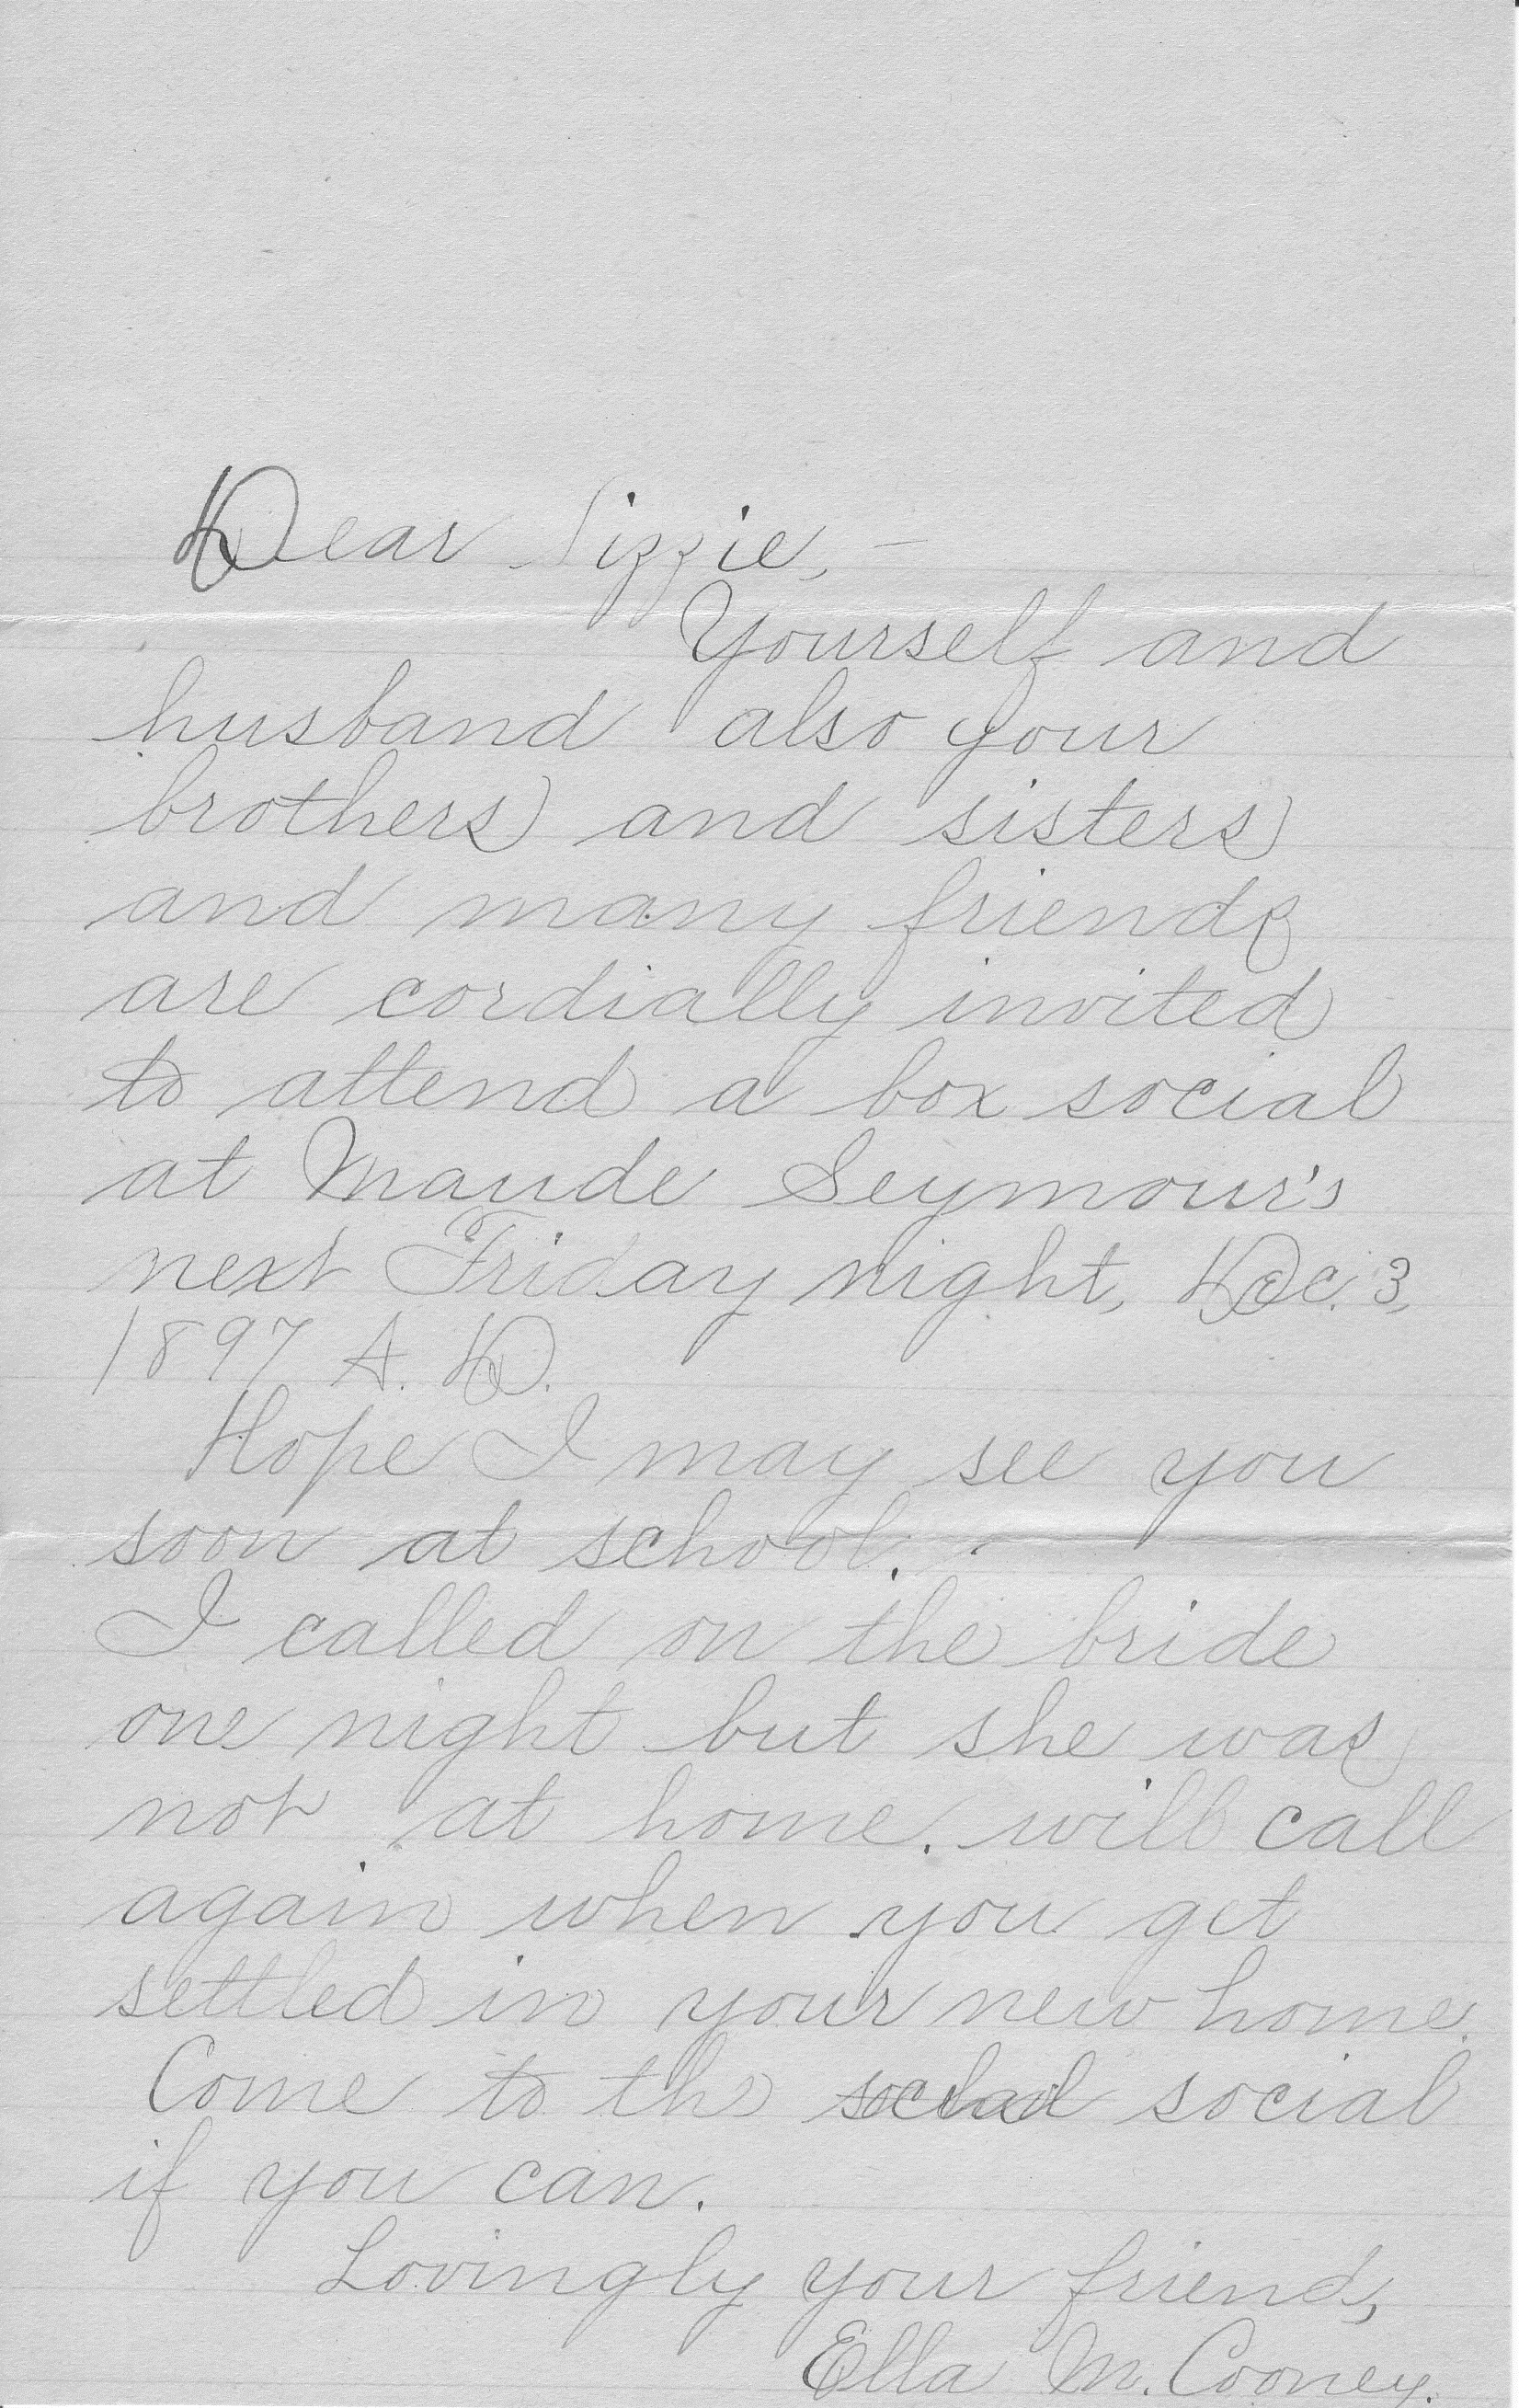 Dear Lizzie, —
Yourself and
husband also your
brothers and sisters
and many friends
are cordially invited
to attend a box social
at Maude Seymour's
next Friday night, Dec. 3,
1897 A. D.
Hope I may see you
soon at school.
I called on the bride
one night but she was
not at home. will call
again when you get
settled in your new home.
Come to the social
if you can.
Lovingly your friend,
Ella M. Cooney.